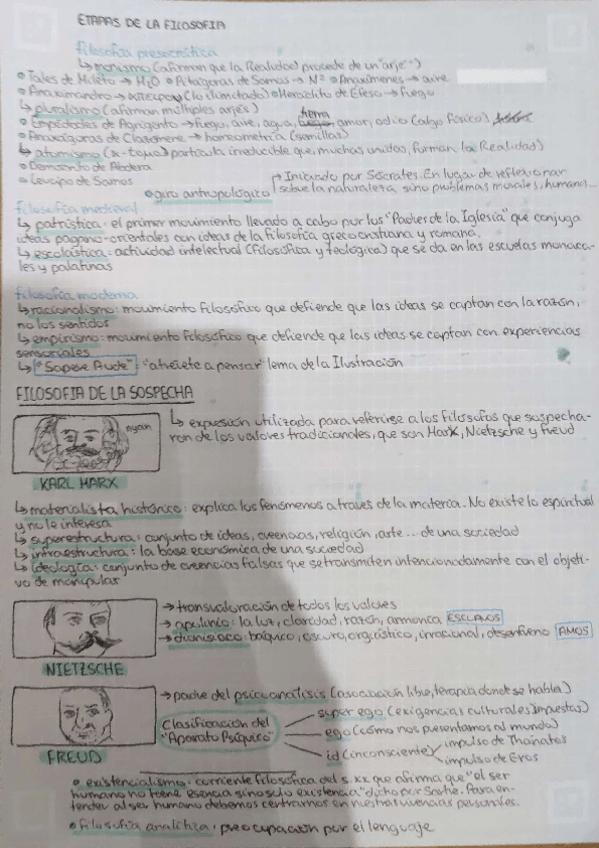 ETAPAS DE LA FILOSOFIA
filosofia presocrática
↳ monismo (afirman que la Realidad procede de un "arje")
• Tales de Mileto → H2O • Pitágoras de Samos → Nº • Anaxímenes → aire
• Anaximandro → (lo ilimitado) • Heráclito de Efeso → fuego
↳ pluralismo (afirman múltiples arjes)
• Empédocles de Agrigento → fuego, aire, agua, tierra, amor, odio (algo físico)
• Anaxágoras de Clazomene → homeometría (semillas)
↳ atomismo (x-tomo) partícula irreducible que, muchas unidas, forman la Realidad)
• Demócrito de Abdera
• Leucipo de Samos
• giro antropológico → Iniciado por Sócrates. En lugar de reflexionar
sobre la naturaleza, sino problemas morales, humanos...
filosofia medieval
↳ patrística: el primer movimiento llevado a cabo por los "Padres de la Iglesia" que conjuga
ideas pagano-orientales con ideas de la filosofía grecocristiana y romana.
↳ escolástica: actividad intelectual (filosófica y teológica) que se da en las escuelas monaca-
les y palatinas
filosofia moderna
↳ racionalismo: movimiento filosófico que defiende que las ideas se captan con la razón,
no los sentidos
↳ empirismo: movimiento filosófico que defiende que las ideas se captan con experiencias
sensoriales
↳ "Sapere Aude": "atrévete a pensar" lema de la Ilustración
FILOSOFIA DE LA SOSPECHA
↳ expresión utilizada para referirse a los filósofos que sospecha-
ron de los valores tradicionales, que son Marx, Nietzsche y Freud
KARL MARX
↳ materialista histórico: explica los fenómenos a traves de la materia. No existe lo espiritual
y no le interesa
↳ superestructura: conjunto de ideas, creencias, religión, arte... de una sociedad
↳ infraestructura: la base económica de una sociedad
↳ ideología: conjunto de creencias falsas que se transmiten intencionadamente con el objeti-
vo de manipular
→ transvaloración de todos los valores
→ apolíneo: la luz, claridad, razón, armonía ESCLAVOS
→ dionisíaco: báquico, oscuro, orgiástico, irracional, desenfreno AMOS
NIETZSCHE
→ padre del psicoanálisis (asociación libre, terapia donde se habla)
Clasificación del
"Aparato Psíquico"
super ego (exigencias culturales impuestas)
ego (cómo nos presentamos al mundo)
id (inconsciente)
impulso de Thánatos
impulso de Eros
FREUD
• existencialismo: corriente filosófica del s. XX que afirma que "el ser
humano no tiene esencia sino solo existencia" dicho por Sartre. Para en-
tender al ser humano debemos centrarnos en nuestras vivencias personales.
• filosofía analítica: preocupación por el lenguaje